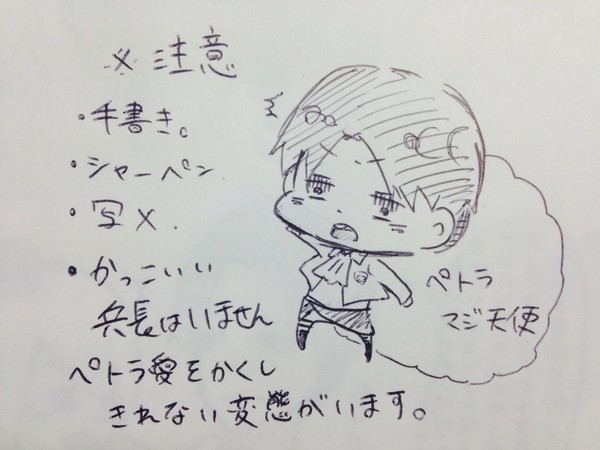 ※注意
・手書き。
・シャーペン
・写メ.
・かっこいい
兵長はいません
ペトラ愛をかくし
きれない変態がいます。
ペトラ
マジ天使